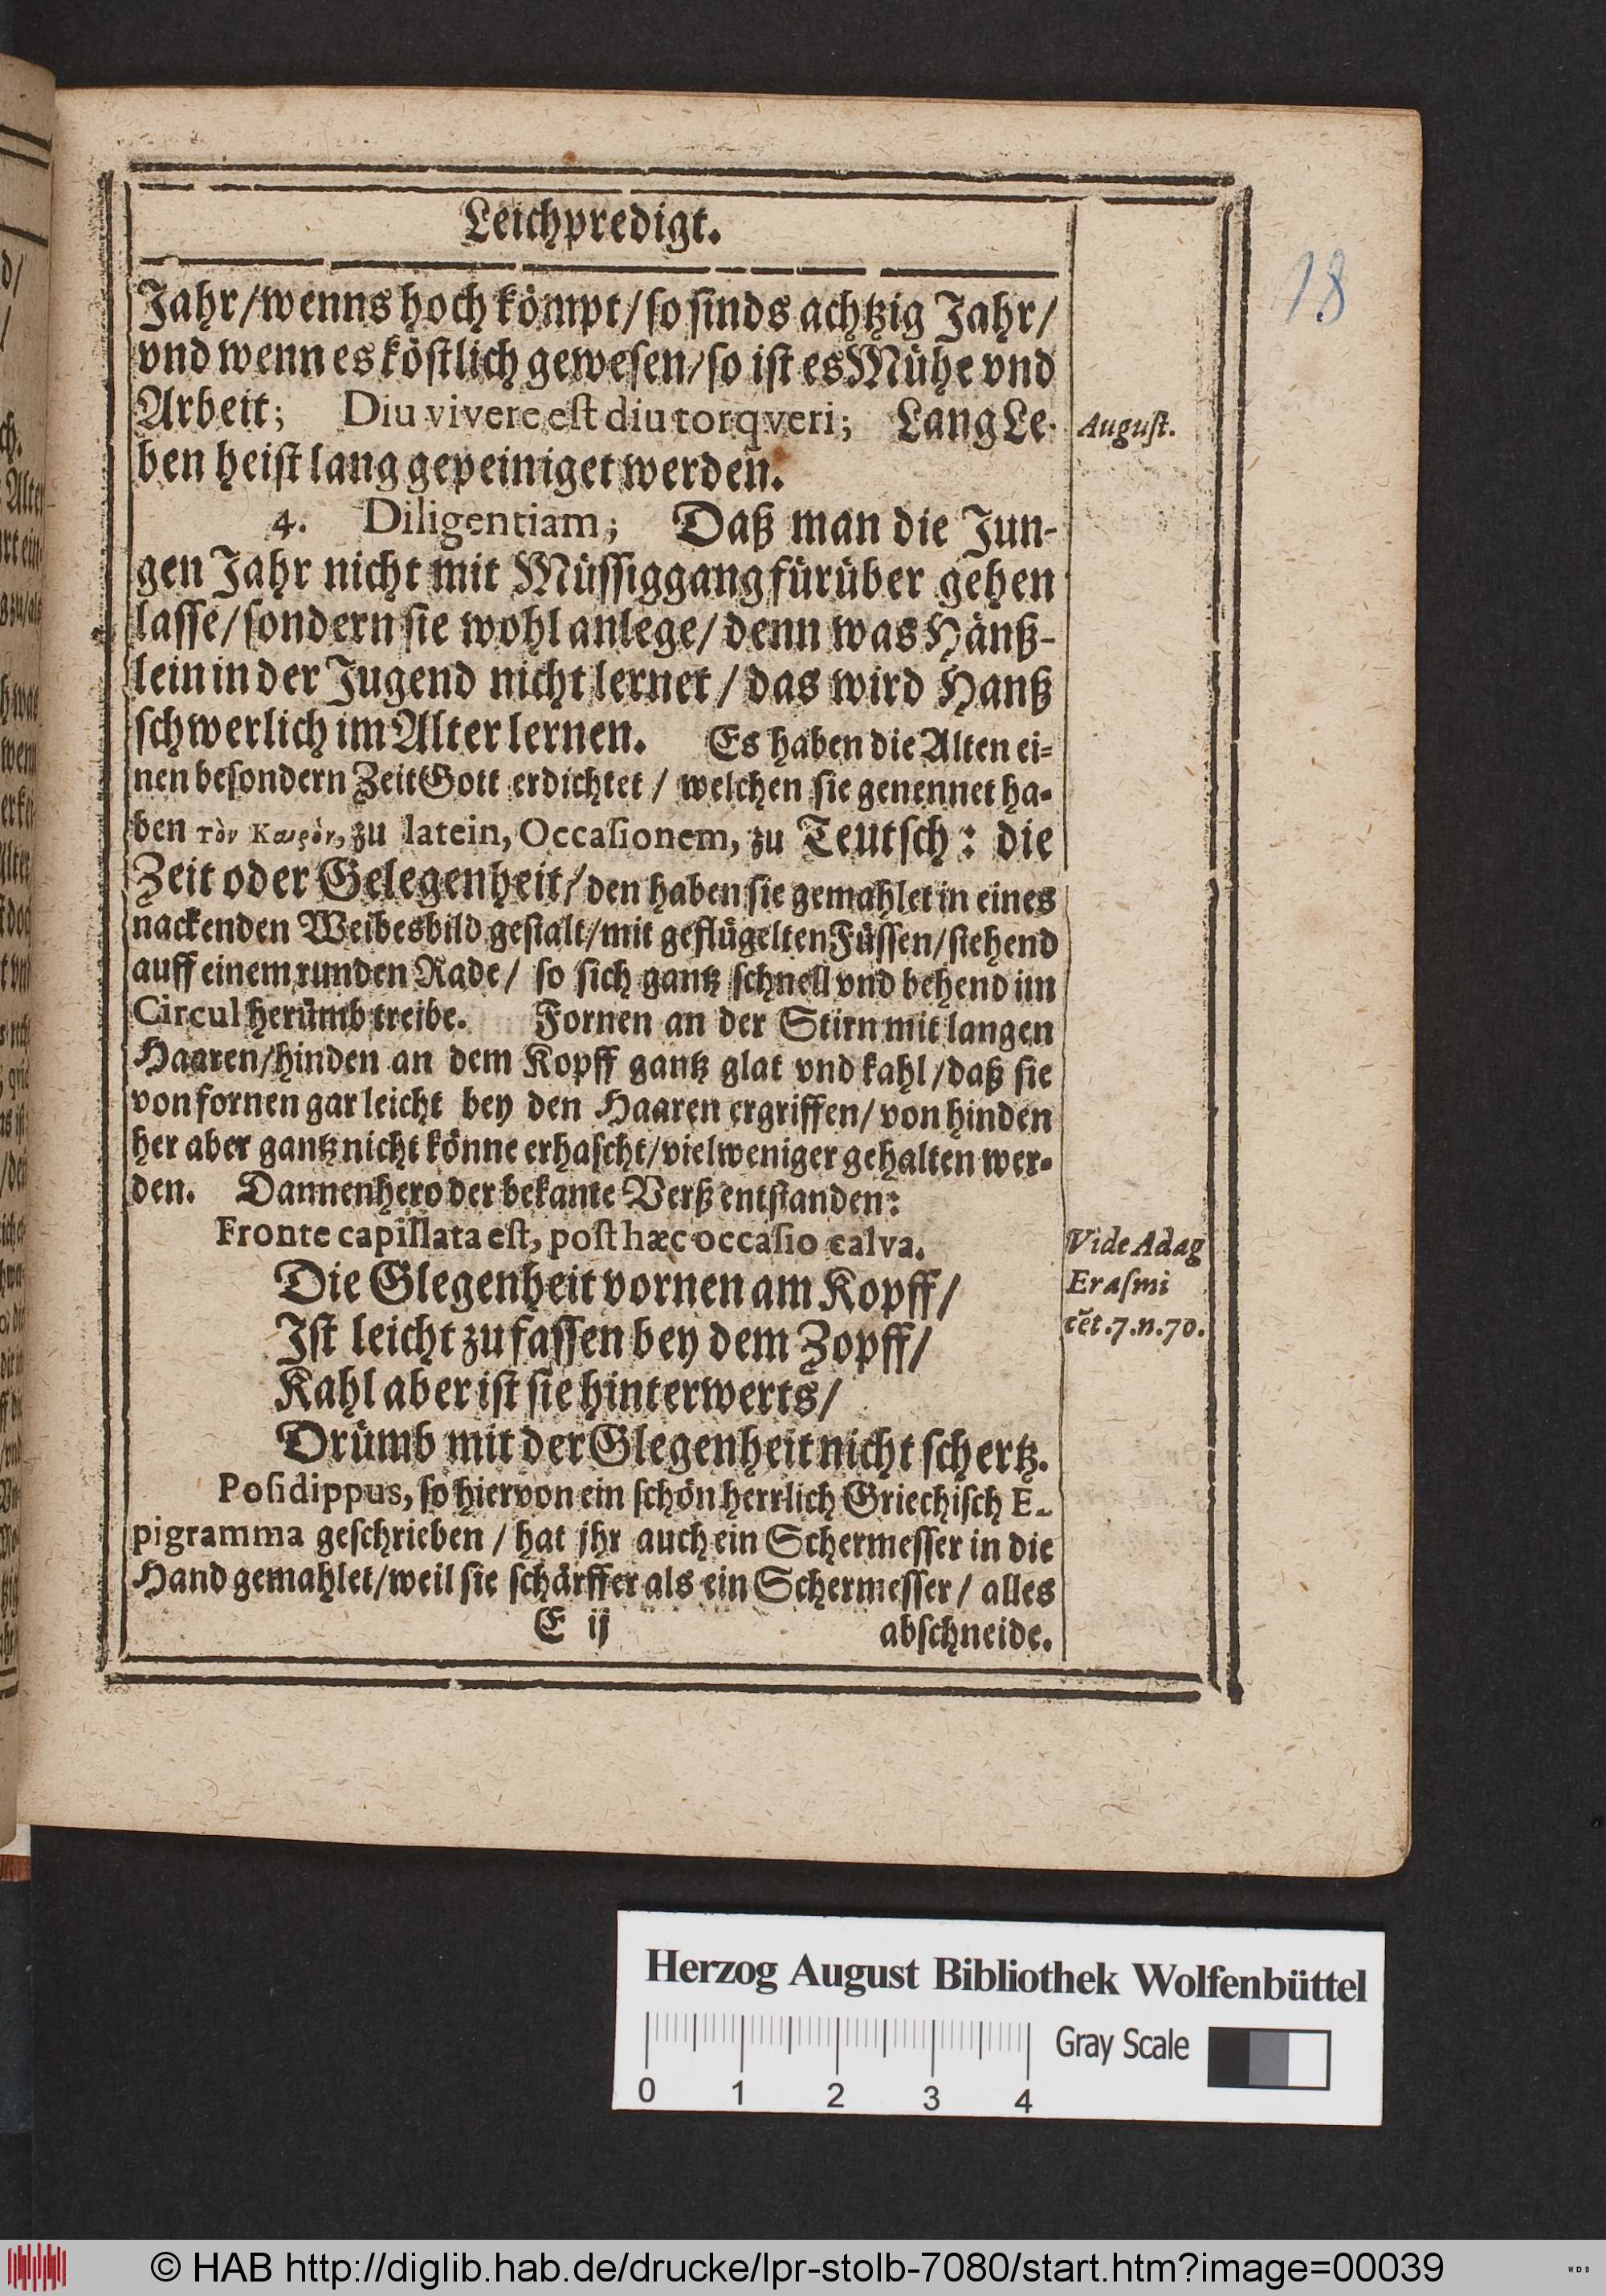 Leichpredigt.
18
Jahr/wenns hoch kömpt/so sinds achtzig Jahr/
vnd wenn es köstlich gewesen/so ist es Mühe vnd
Arbeit; Diu vivere est diu torqveri; Lang Le-
August.
ben heist lang gepeiniget werden.
4. Diligentiam; Daß man die Jun-
gen Jahr nicht mit Müssiggang fürüber gehen
lasse/sondern sie wohl anlege/denn was Hänß-
lein in der Jugend nicht lernet/das wird Hanß
schwerlich im Alter lernen. Es haben die Alten ei-
nen besondern Zeit Gott erdichtet/welchen sie genennet ha-
ben τὸν Καιρὸν, zu latein, Occasionem, zu Teutsch: die
Zeit oder Gelegenheit/den haben sie gemahlet in eines
nackenden Weibesbild gestalt/mit geflügelten Füssen/stehend
auff einem runden Rade/so sich gantz schnell vnd behend im
Circul herümb treibe. Fornen an der Stirn mit langen
Haaren/hinden an dem Kopff gantz glat vnd kahl/daß sie
von fornen gar leicht bey den Haaren ergriffen/von hinden
her aber gantz nicht könne erhascht/vielweniger gehalten wer-
den. Dannenhero der bekante Verß entstanden:
Fronte capillata est, post hæc occasio calva.
Vide Adag
Die Glegenheit vornen am Kopff/
Erasmi
Ist leicht zu fassen bey dem Zopff/
cẽt.7.n.70.
Kahl aber ist sie hinterwerts/
Drümb mit der Glegenheit nicht schertz.
Posidippus, so hiervon ein schön herrlich Griechisch E-
pigramma geschrieben/hat jhr auch ein Schermesser in die
Hand gemahlet/weil sie schärffer als ein Schermesser/alles
E ij abschneide.
Herzog August Bibliothek Wolfenbüttel
Gray Scale
0 1 2 3 4
© HAB http://diglib.hab.de/drucke/lpr-stolb-7080/start.htm?image=00039